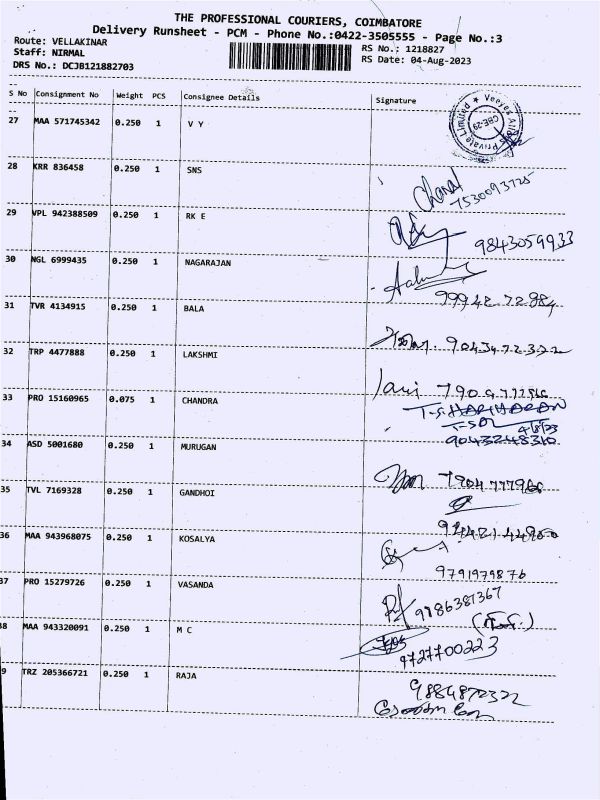 THE PROFESSIONAL COURIERS, COIMBATORE
Delivery Runsheet - PCM - Phone No.:0422-3505555 - Page No.:3
Route: VELLAKINAR
RS No.: 1218827
Staff: NIRMAL
RS Date: 04-Aug-2023
DRS No.: DCJB121882703
S No Consignment No Weight PCS Consignee Details Signature
27 MAA 571745342 0.250 1 V Y
Private Limited ★ Veeyes CBE-29
28 KRR 836458 0.250 1 SNS
7530093725
29 VPL 942388509 0.250 1 RK E
9843059933
30 NGL 6999435 0.250 1 NAGARAJAN
99942 72984
31 TVR 4134915 0.250 1 BALA
9043472322
32 TRP 4477888 0.250 1 LAKSHMI
33 PRO 15160965 0.075 1 CHANDRA
T-S HARIHARAN
4/8/23
9043248310
34 ASD 5001680 0.250 1 MURUGAN
35 TVL 7169328 0.250 1 GANDHOI
36 MAA 943968075 0.250 1 KOSALYA
9791979876
37 PRO 15279726 0.250 1 VASANDA
9786387367
38 MAA 943320091 0.250 1 M C
9727700223
9 TRZ 205366721 0.250 1 RAJA
9884872322